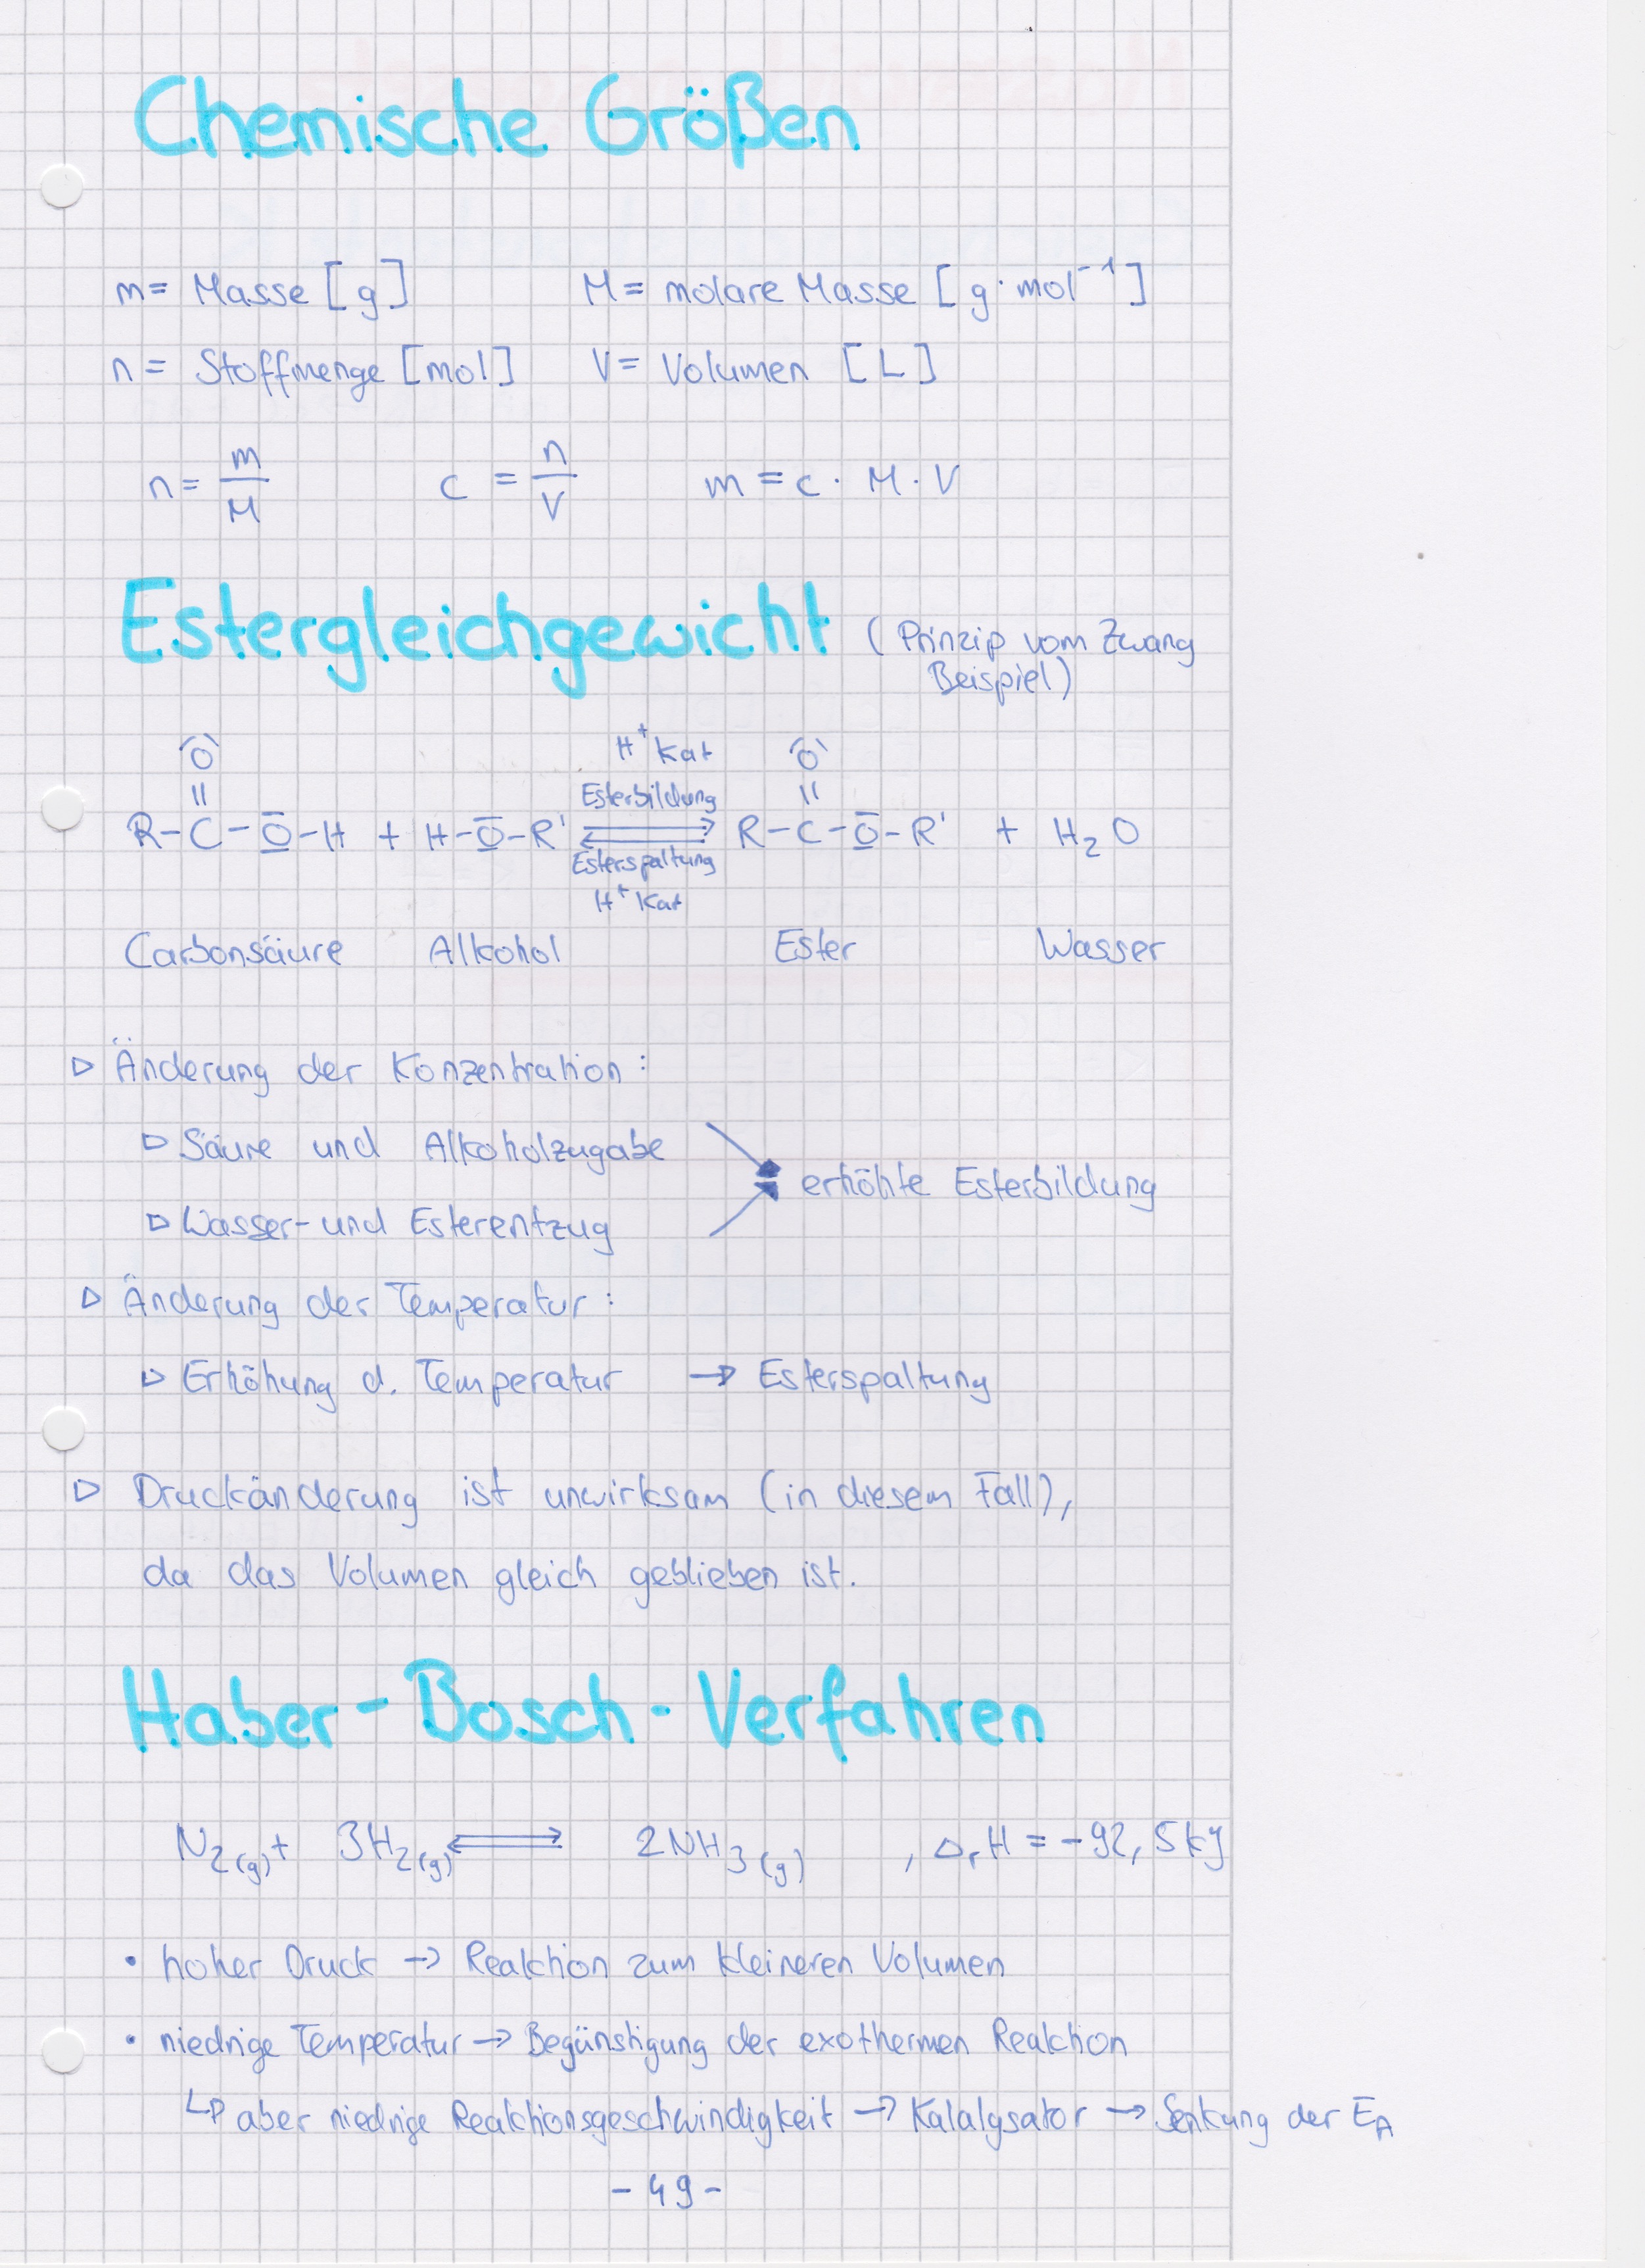 Chemische Größen
m = Masse [g] M = molare Masse [g · mol⁻¹]
n = Stoffmenge [mol] V = Volumen [L]
n = m/M c = n/V m = c · M · V
Estergleichgewicht (Prinzip vom Zwang
Beispiel)
O H⁺ Kat O
|| Esterbildung ||
R-C-O-H + H-O-R' ⇌ R-C-O-R' + H₂O
Esterspaltung
H⁺ Kat
Carbonsäure Alkohol Ester Wasser
▷ Änderung der Konzentration:
▷ Säure und Alkoholzugabe
erhöhte Esterbildung
▷ Wasser- und Esterentzug
▷ Änderung der Temperatur:
▷ Erhöhung d. Temperatur → Esterspaltung
▷ Druckänderung ist unwirksam (in diesem Fall),
da das Volumen gleich geblieben ist.
Haber-Bosch-Verfahren
N₂(g) + 3H₂(g) ⇌ 2NH₃(g) , ΔᵣH = -92,5 kJ
• hoher Druck → Reaktion zum kleineren Volumen
• niedrige Temperatur → Begünstigung der exothermen Reaktion
↳ aber niedrige Reaktionsgeschwindigkeit → Kalalysator → Senkung der E_A
- 49 -